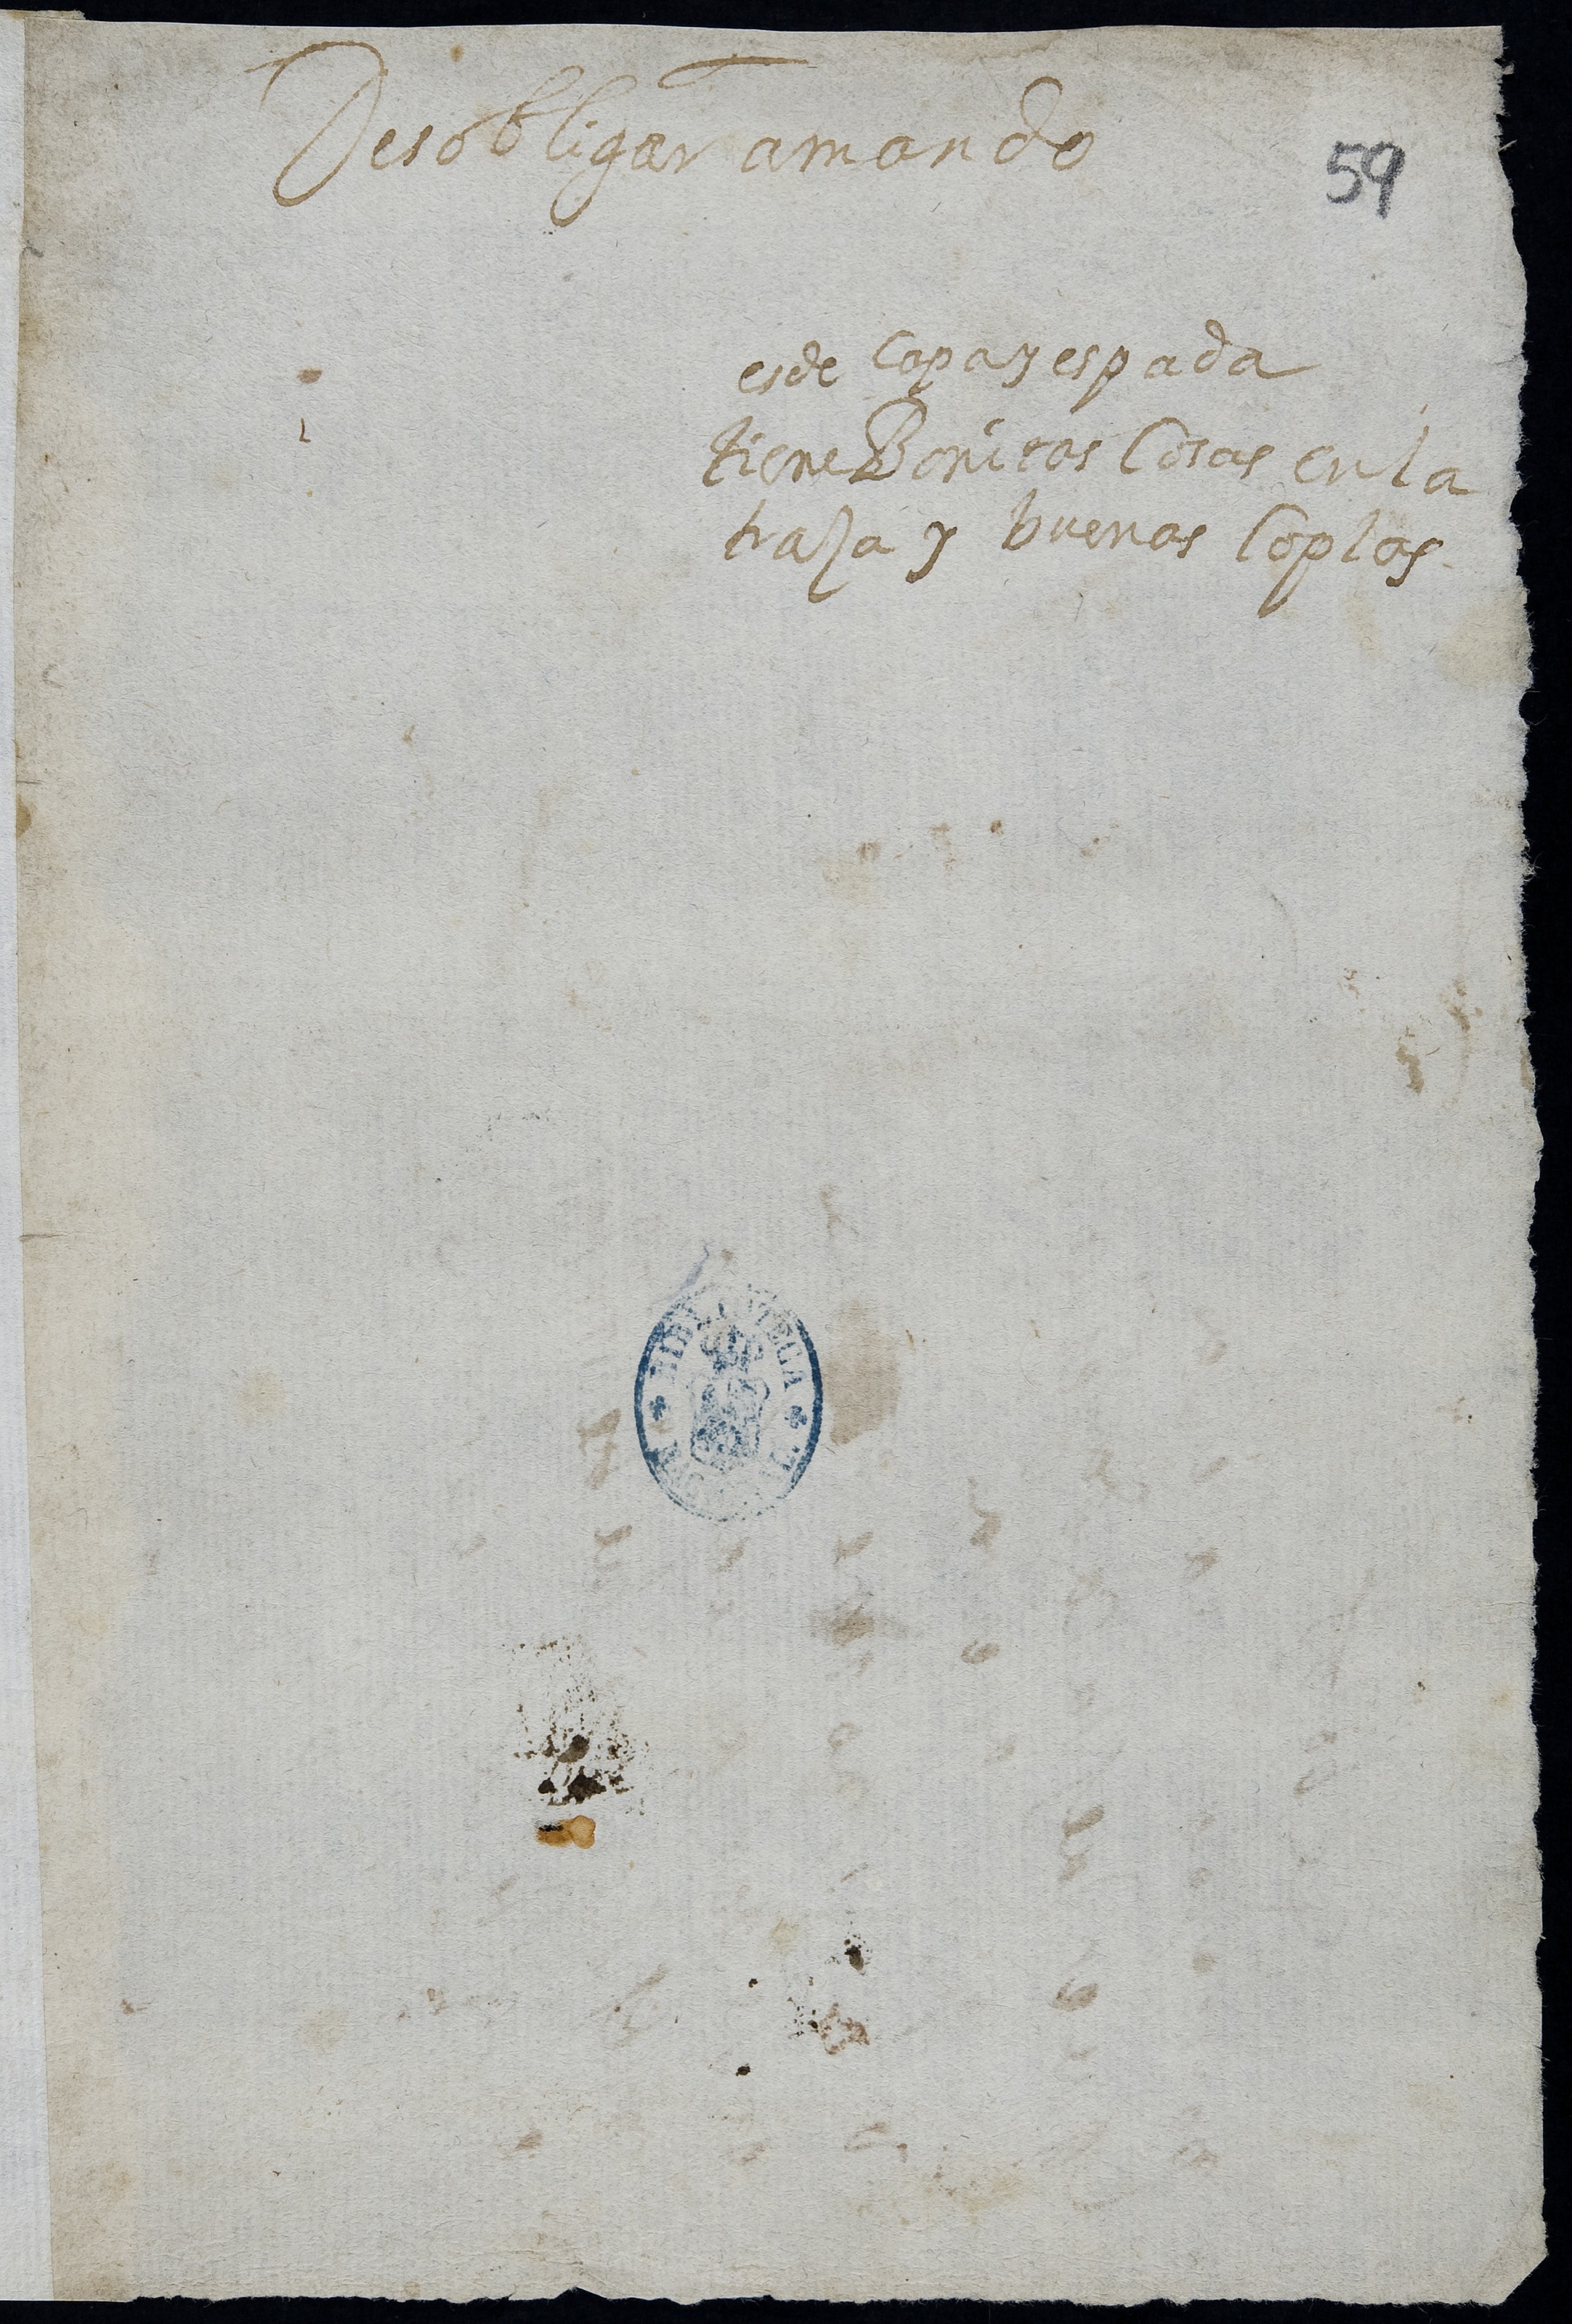 Desobligar amando
59
es de Capa y espada
tiene Bonitas Cosas en la
traza y buenas Coplas.
BIBLIOTECA